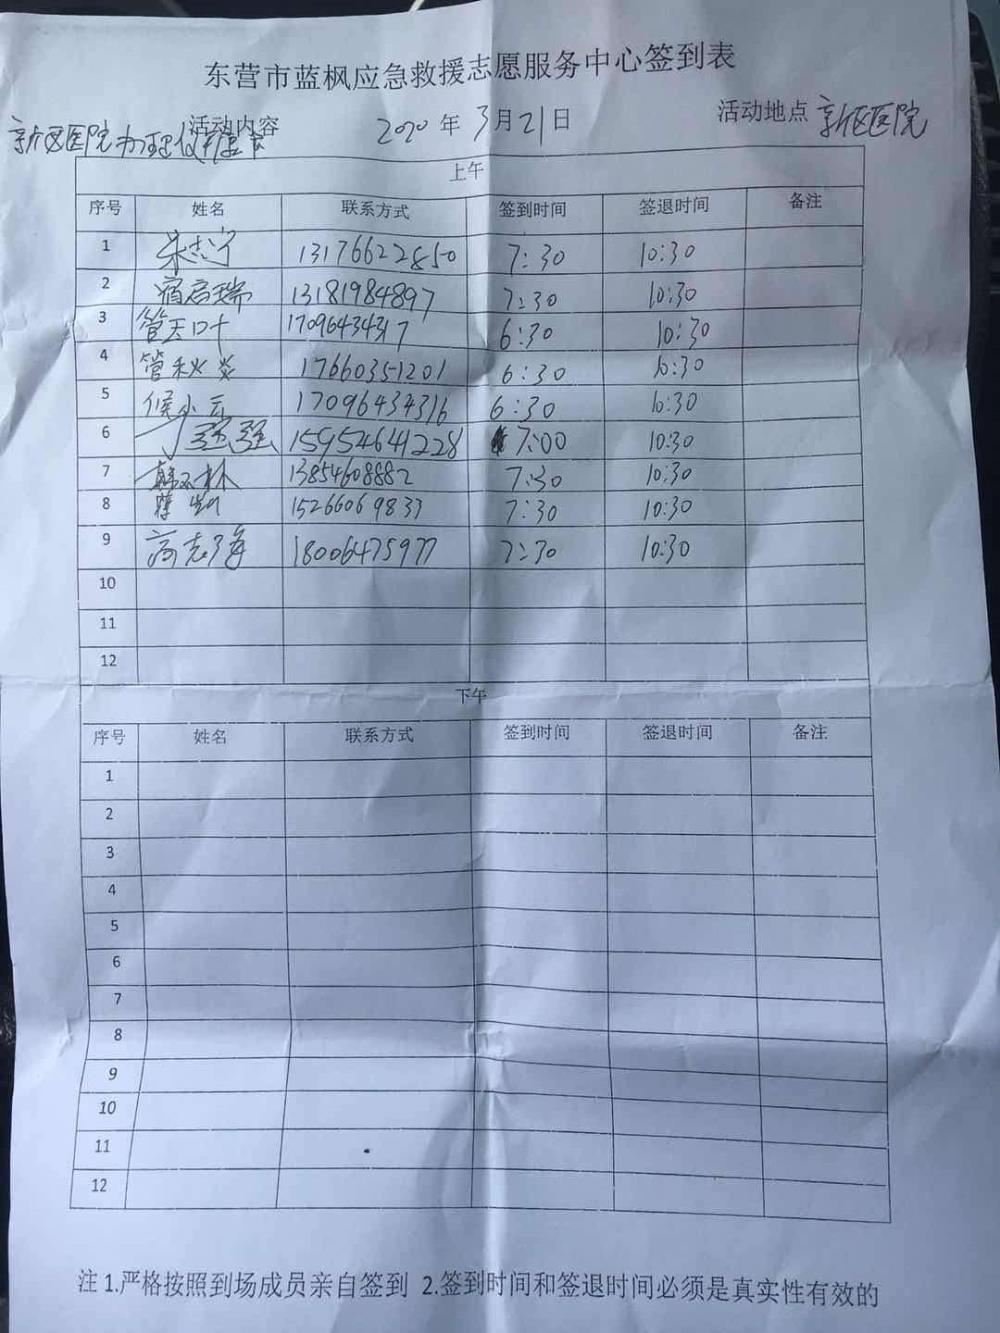 东营市蓝枫应急救援志愿服务中心签到表
活动内容 2020年3月21日 活动地点 新区医院
新区医院办理健康卡
上午
序号 姓名 联系方式 签到时间 签退时间 备注
1 朱志宁 13176622850 7:30 10:30
2 宿启瑞 13181984897 7:30 10:30
3 管天叶 17096434317 6:30 10:30
4 管秋炎 17660351201 6:30 10:30
5 候小云 17096434316 6:30 10:30
6 15954641228 7:00 10:30
7 13854608882 7:30 10:30
8 15266069833 7:30 10:30
9 高志海 18006475977 7:30 10:30
10
11
12
下午
序号 姓名 联系方式 签到时间 签退时间 备注
1
2
3
4
5
6
7
8
9
10
11
12
注 1.严格按照到场成员亲自签到 2.签到时间和签退时间必须是真实性有效的